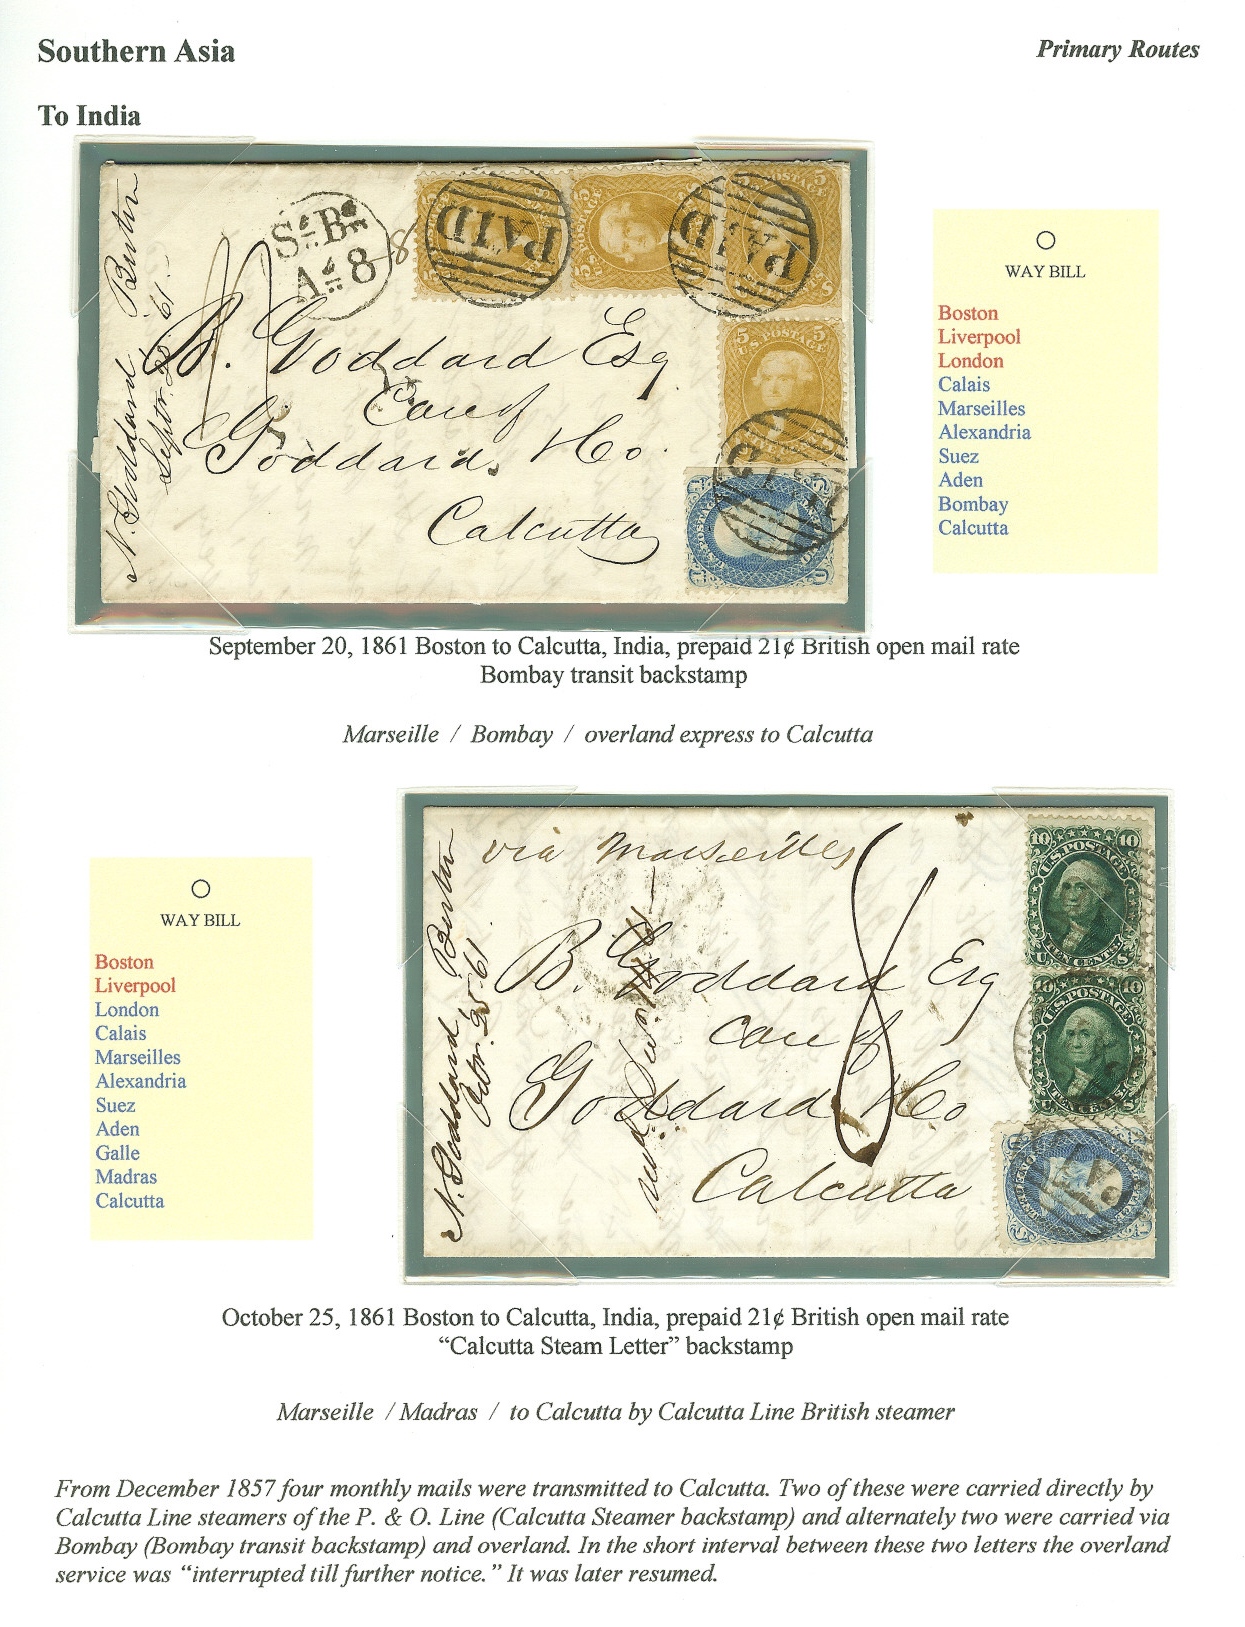 Southern Asia
Primary Routes
To India
N. Goddard Boston
Septr. 20 61.
St. Br.
At. 8
8
PAID
PAID
5 5
U.S. POSTAGE
PAID
B. Goddard Esq
Care of
Goddard & Co.
Calcutta
WAY BILL
Boston
Liverpool
London
Calais
Marseilles
Alexandria
Suez
Aden
Bombay
Calcutta
September 20, 1861 Boston to Calcutta, India, prepaid 21¢ British open mail rate
Bombay transit backstamp
Marseille / Bombay / overland express to Calcutta
WAY BILL
Boston
Liverpool
London
Calais
Marseilles
Alexandria
Suez
Aden
Galle
Madras
Calcutta
via Marseilles
N. Goddard Boston
Octr. 25 61
8
B. Goddard Esq
care of
Goddard & Co
Calcutta
10 10
U.S. POSTAGE
TEN CENTS
U S
10 10
U.S. POSTAGE
TEN CENTS
PAID
October 25, 1861 Boston to Calcutta, India, prepaid 21¢ British open mail rate
“Calcutta Steam Letter” backstamp
Marseille / Madras / to Calcutta by Calcutta Line British steamer
From December 1857 four monthly mails were transmitted to Calcutta. Two of these were carried directly by
Calcutta Line steamers of the P. & O. Line (Calcutta Steamer backstamp) and alternately two were carried via
Bombay (Bombay transit backstamp) and overland. In the short interval between these two letters the overland
service was “interrupted till further notice.” It was later resumed.